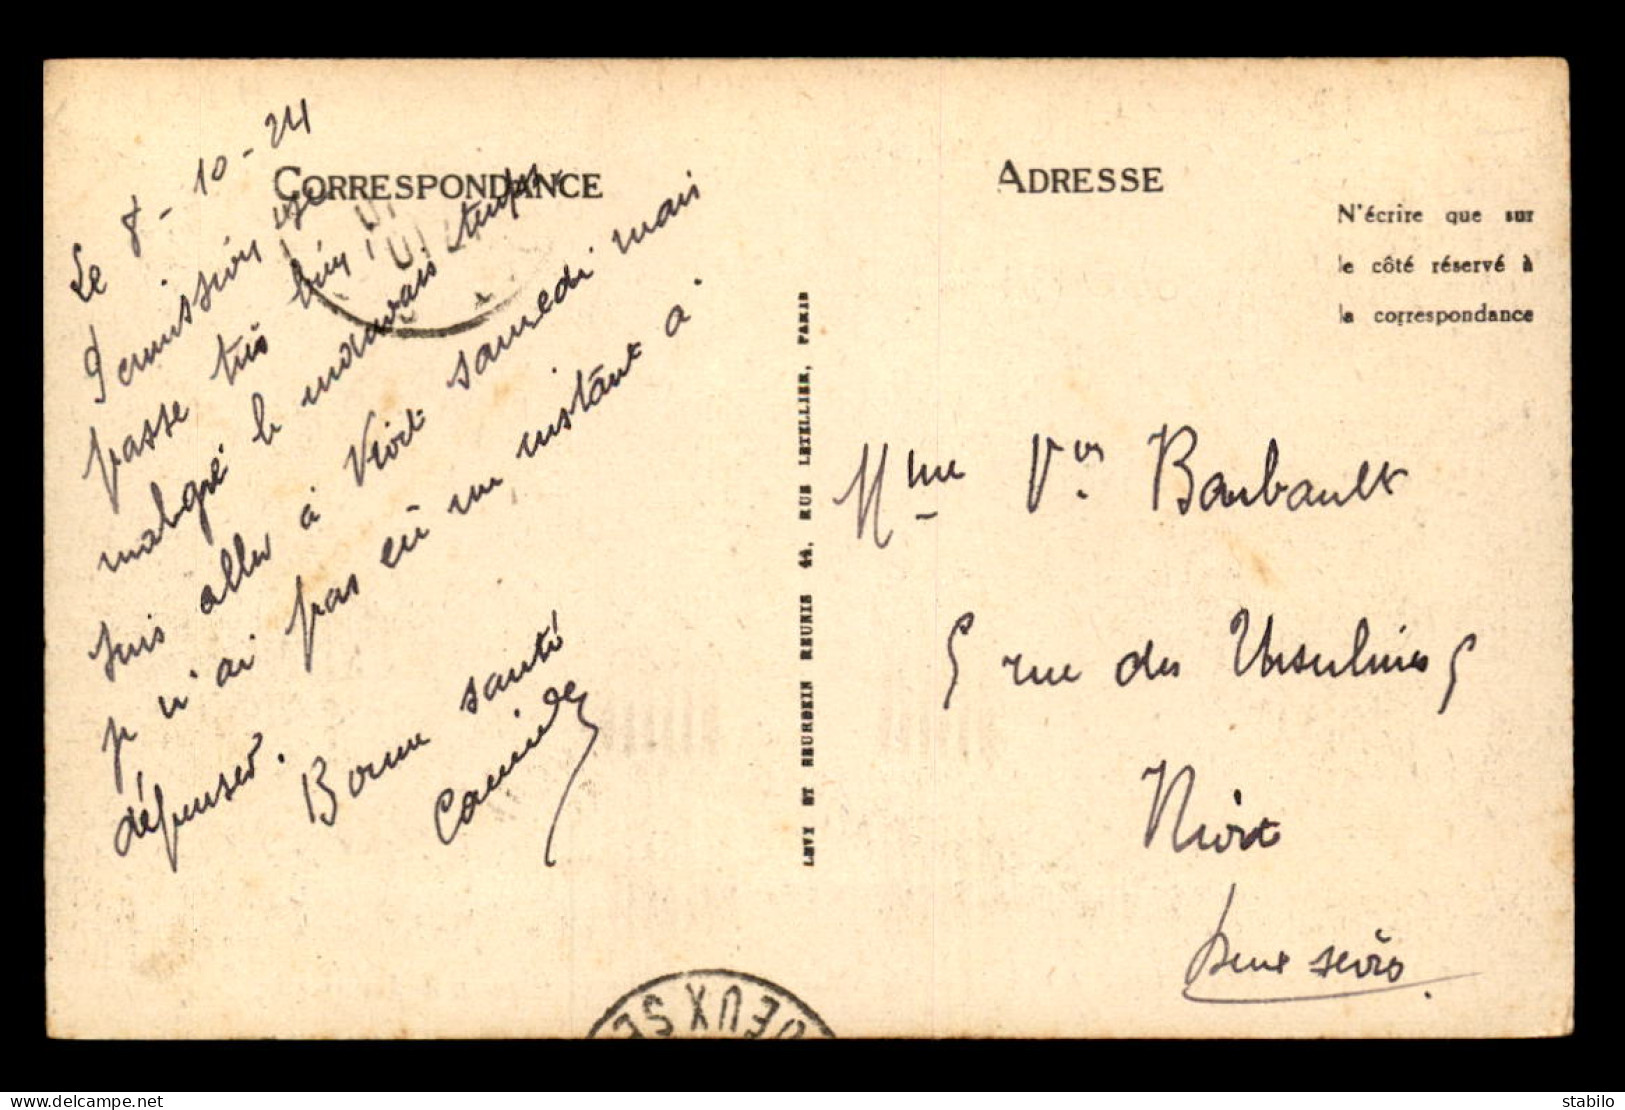 CORRESPONDANCE
Le 8-10-24
Permission se
passe très bien
malgré le mauvais temps.
suis aller à Niort samedi mais
je n'ai pas eü un instant à
dépenser.
Bonne santé
Camille
ADRESSE
N'écrire que sur
le côté réservé à
la correspondance
LEVY ET NEURDEIN REUNIS 44, RUE LETELLIER, PARIS
Mme Vve Barbault
5 rue des Ursulines 5
Niort
Deux sèvres.
DEUX SE